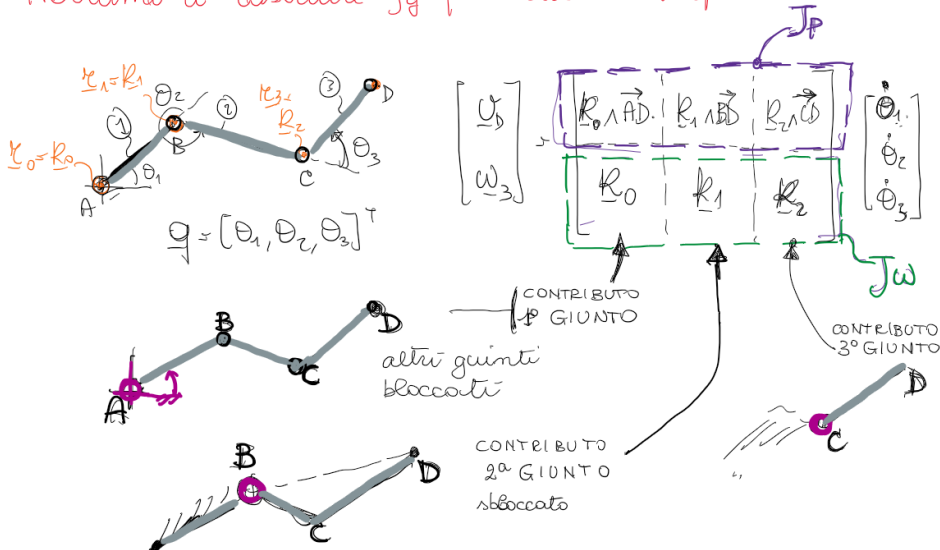 J_P
r_1 = k_1
r_0 = k_0
r_3 =
k_2
① ② ③
θ_1 θ_2 θ_3
A B C D
q = [θ_1, θ_2, θ_3]^T
[v_D ω_3]
k_0 ∧ AD k_1 ∧ BD k_2 ∧ CD
k_0 k_1 k_2
[θ̇_1 θ̇_2 θ̇_3]
Jω
CONTRIBUTO
1° GIUNTO
A B C D
altri guinti
bloccati
CONTRIBUTO
3° GIUNTO
C D
CONTRIBUTO
2ª GIUNTO
sbloccato
B C D